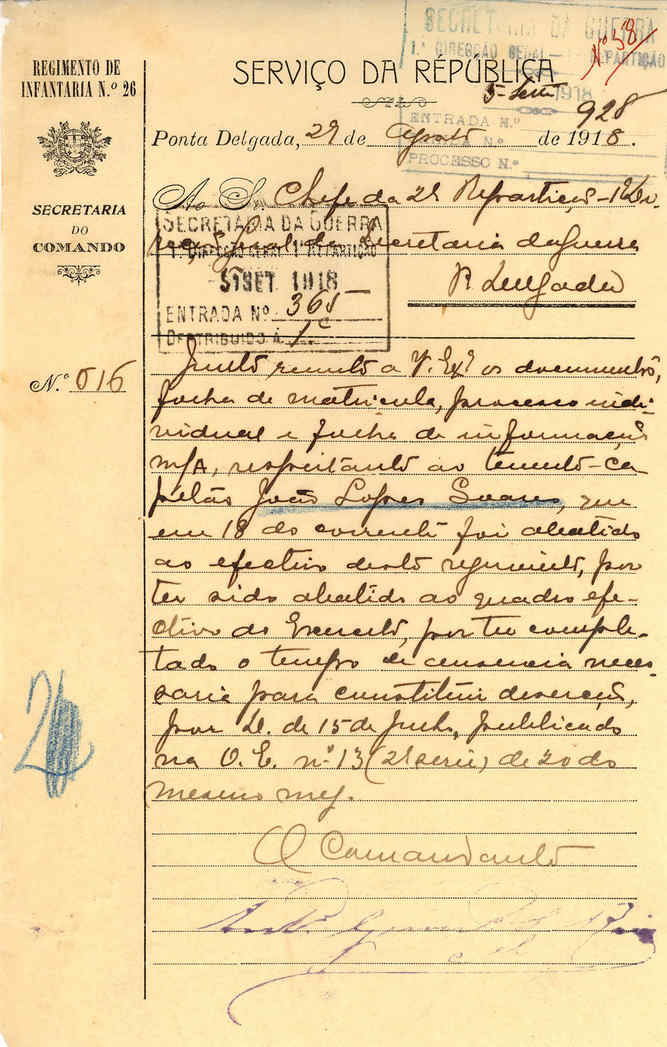 SECRETARIA DA GUERRA
1.ª DIRECÇÃO GERAL — REPARTIÇÃO
Nº 58
REGIMENTO DE
INFANTARIA N.º 26
SERVIÇO DA RÉPÚBLICA
5- 1918
ENTRADA N.º 928
PROCESSO N.º
Ponta Delgada, 29 de Agosto de 1918.
SECRETARIA
DO
COMANDO
Ao Sr. Chefe da 2ª Repartição - 1ª Di-
recção Geral da Secretaria da Guerra
SECRETARIA DA GUERRA
1.ª DIRECÇÃO GERAL 1ª REPARTIÇÃO
5 SET. 1918
ENTRADA Nº 365
DESTRIBUIDO Á 1.ª
P. Delgada
N.º 616
Junto remeto a V. Exª os documentos,
folha de matricula, processo indi-
vidual e folha de informação
M/A, respeitante ao tenente-ca-
pelão João Lopes Soares, que
em 18 do corrente foi abatido
ao efectivo deste regimento, por
ter sido abatido ao quadro efe-
ctivo do Exercito, por ter comple-
tado o tempo de ausencia neces-
saria para constituir deserção,
por D. de 15 de Julho, publicado
na O. E. nº 13 (2ª serie) de 20 do
mesmo mez.
O Comandante
26